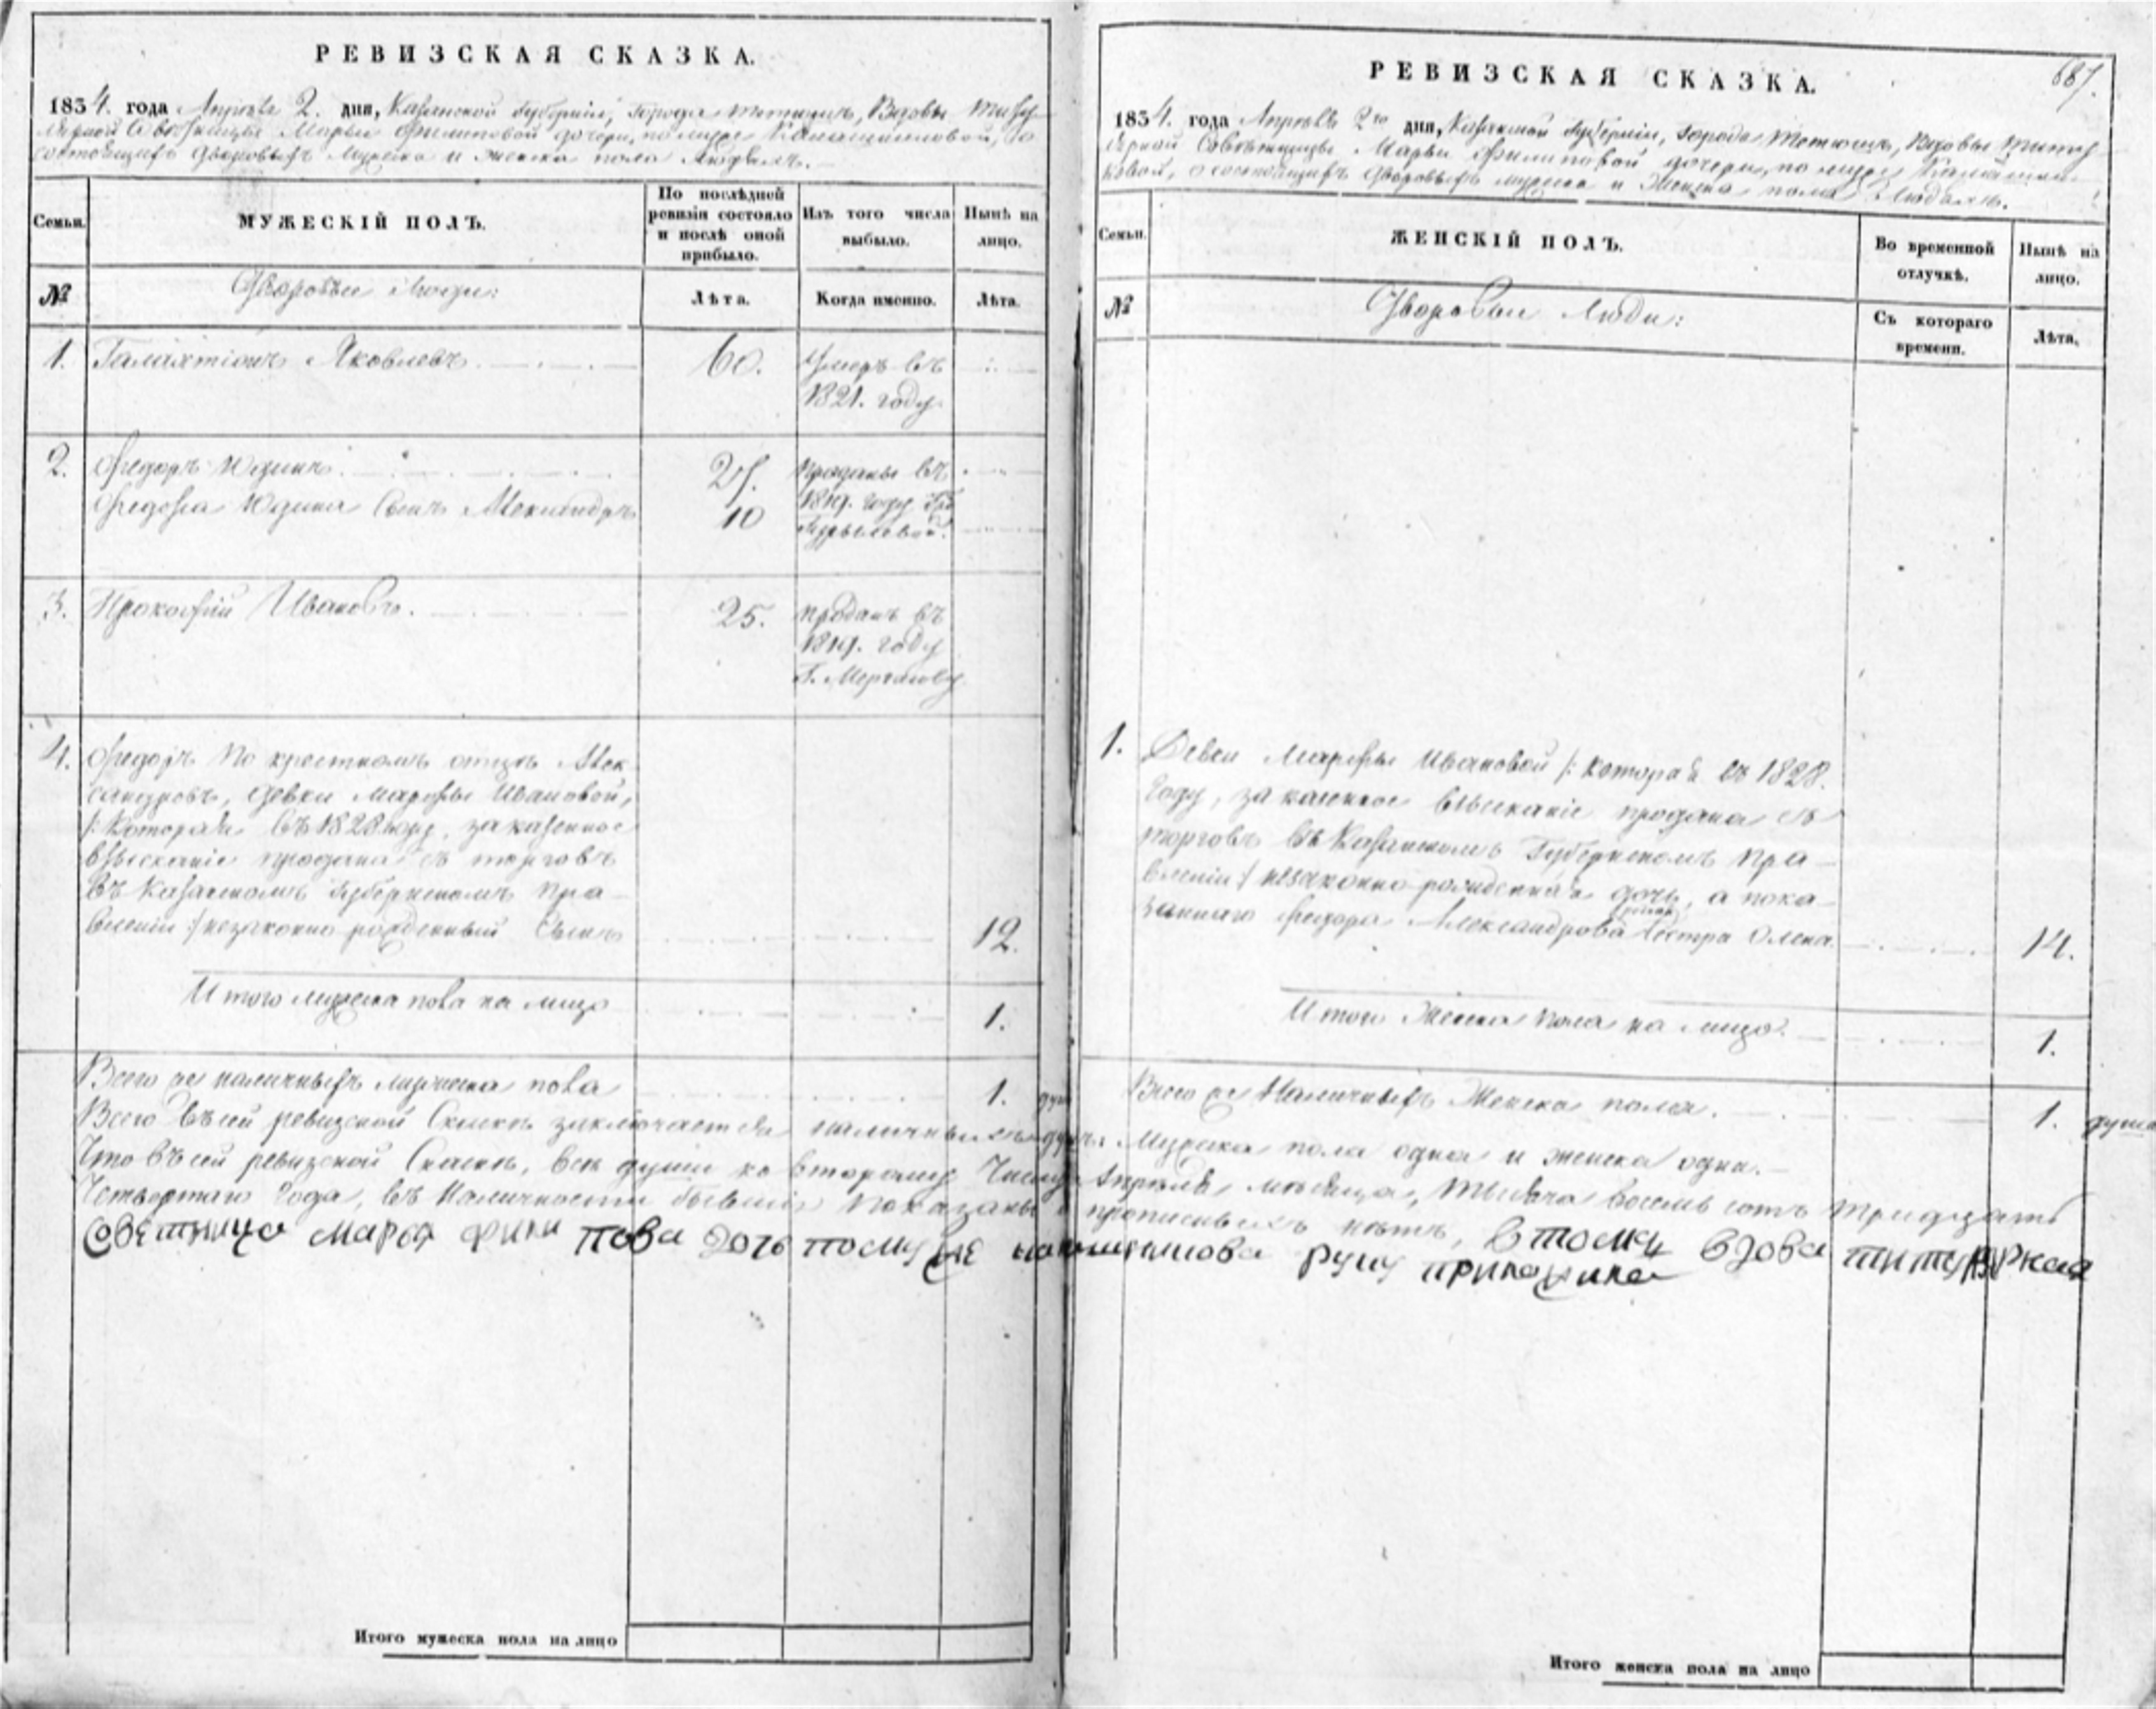 РЕВИЗСКАЯ СКАЗКА.
1834. года Апреля 2. дня, Казанской Губерніи, Города Тетюшъ, Вдовы Титу
лярной Советницы Марьи Филиповой дочери, по муже
состоящихъ дворовыхъ мужеска и женска пола людяхъ.
Семьи.
МУЖЕСКІЙ ПОЛЪ.
По послѣдней ревизіи состояло и послѣ оной прибыло.
Изъ того числа выбыло.
Нынѣ на лицо.
№
Дворовые Люди:
Лѣта.
Когда именно.
Лѣта.
1. Галахтіонъ Яковлевъ 60. Умеръ въ
1821. году.
2. Федоръ Юдинъ. 27. Проданы въ
Федора Юдина Сынъ Александръ 10 1819. году
3. Прокофій Ивановъ. 25. Проданъ въ
1819. году
4. Федоръ по крестномъ отцѣ Алек
сандровъ, девки Марфы Ивановой,
/: Которая въ 1828 году, за казенное
взысканіе продана съ торговъ
въ Казанскомъ Губернскомъ Пра
вленіи :/ незаконно рожденный Сынъ 12.
Итого мужеска пола на лицо 1.
Всего же наличныхъ мужеска пола 1. душа
РЕВИЗСКАЯ СКАЗКА.
687.
1834. года Апреля 2го дня, Казанской Губерніи, Города Тетюшъ, Вдовы Титу
лярной Советницы Марьи Филиповой дочери, по муже
о состоящихъ дворовыхъ мужеска и Женска пола Людяхъ.
Семьи.
ЖЕНСКІЙ ПОЛЪ.
Во временной отлучкѣ.
Нынѣ на лицо.
№
Дворовые Люди:
Съ котораго времени.
Лѣта.
1. Девки Марфы Ивановой /: которая въ 1828.
году, за казенное взысканіе продана съ
торговъ въ Казанскомъ Губернскомъ Пра
вленіи :/ незаконно рожденная дочь, а пока
заннаго Федора Александрова сестра Олена. 14.
Итого Женска пола на лицо. 1.
Всего же Наличныхъ Женска пола. 1. душа
Всего въ сей ревизской Сказкѣ заключается наличныхъ душъ: Мужеска пола одна и женска одна.
Что въ сей ревизской Сказкѣ, все души ко второму Числу Апреля месяца, тысяча восемь сотъ тридцать
Четвертаго года, въ Наличности бывшіе Показаны и прописныхъ нетъ, в томъ вдова титулярная
Советница Марья Филипова дочь по муже руку приложила
Итого мужеска пола на лицо
Итого женска пола на лицо